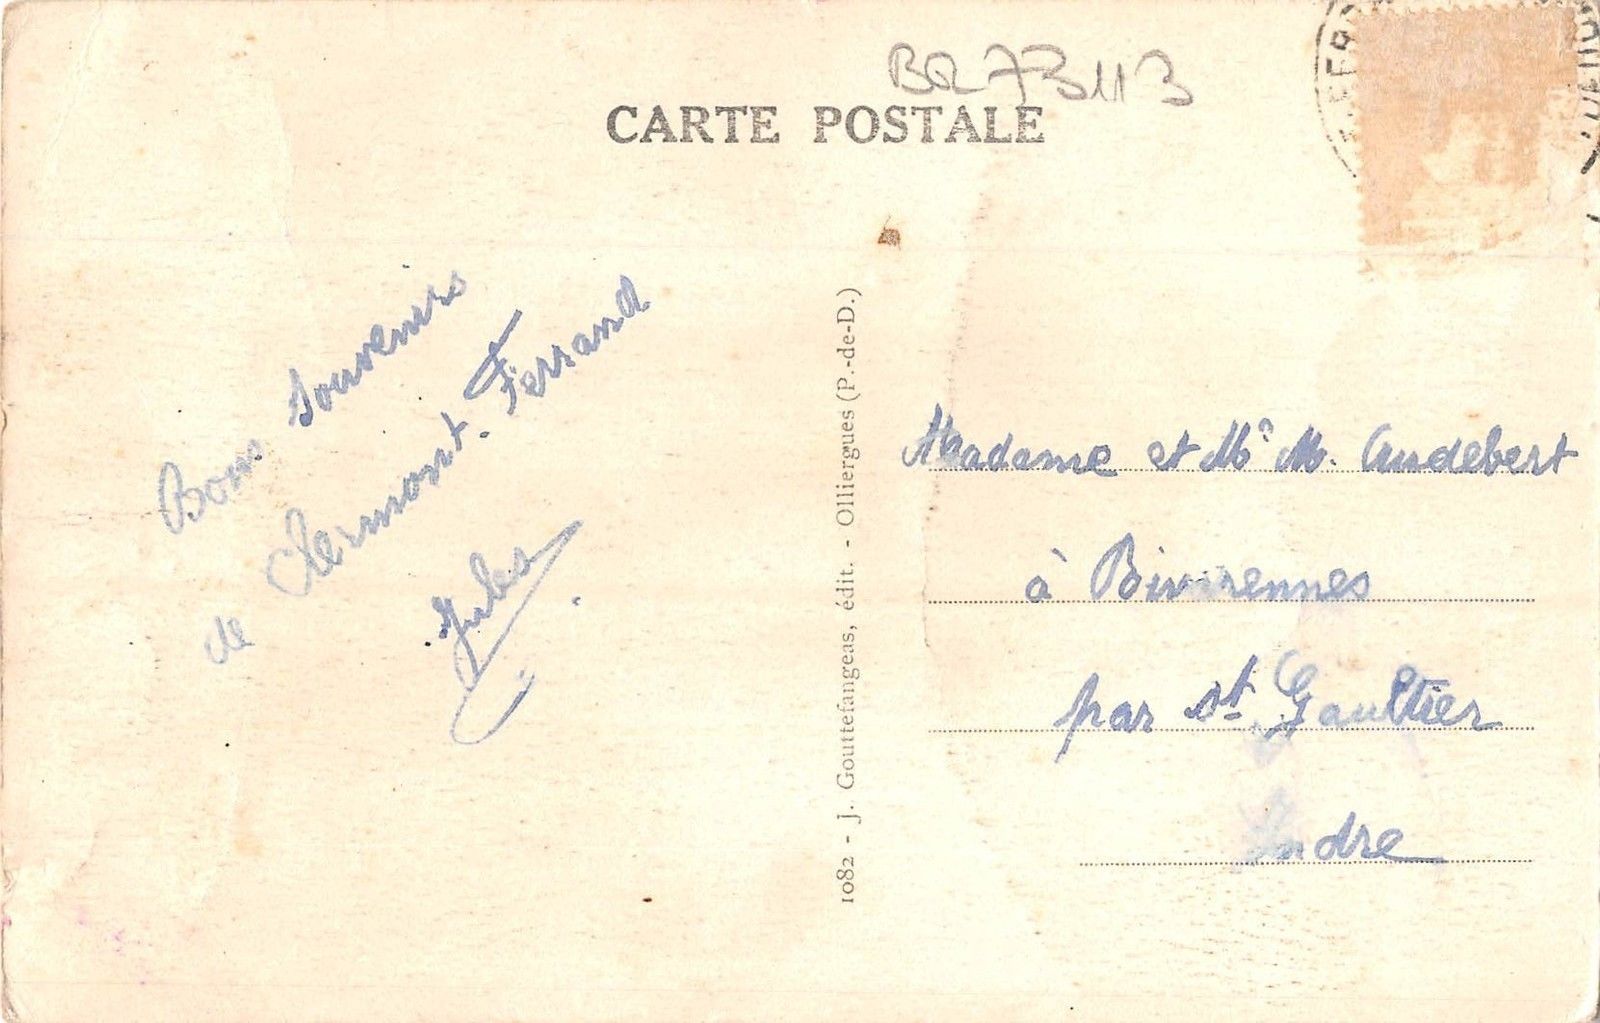 BQ 73113
CARTE POSTALE
Bons souvenirs
de Clermont-Ferrand
Jules
1082 - J. Gouttefangeas, édit. - Olliergues (P.-de-D.)
Madame et Mr M. Audebert
à
par St. Gaultier
Indre